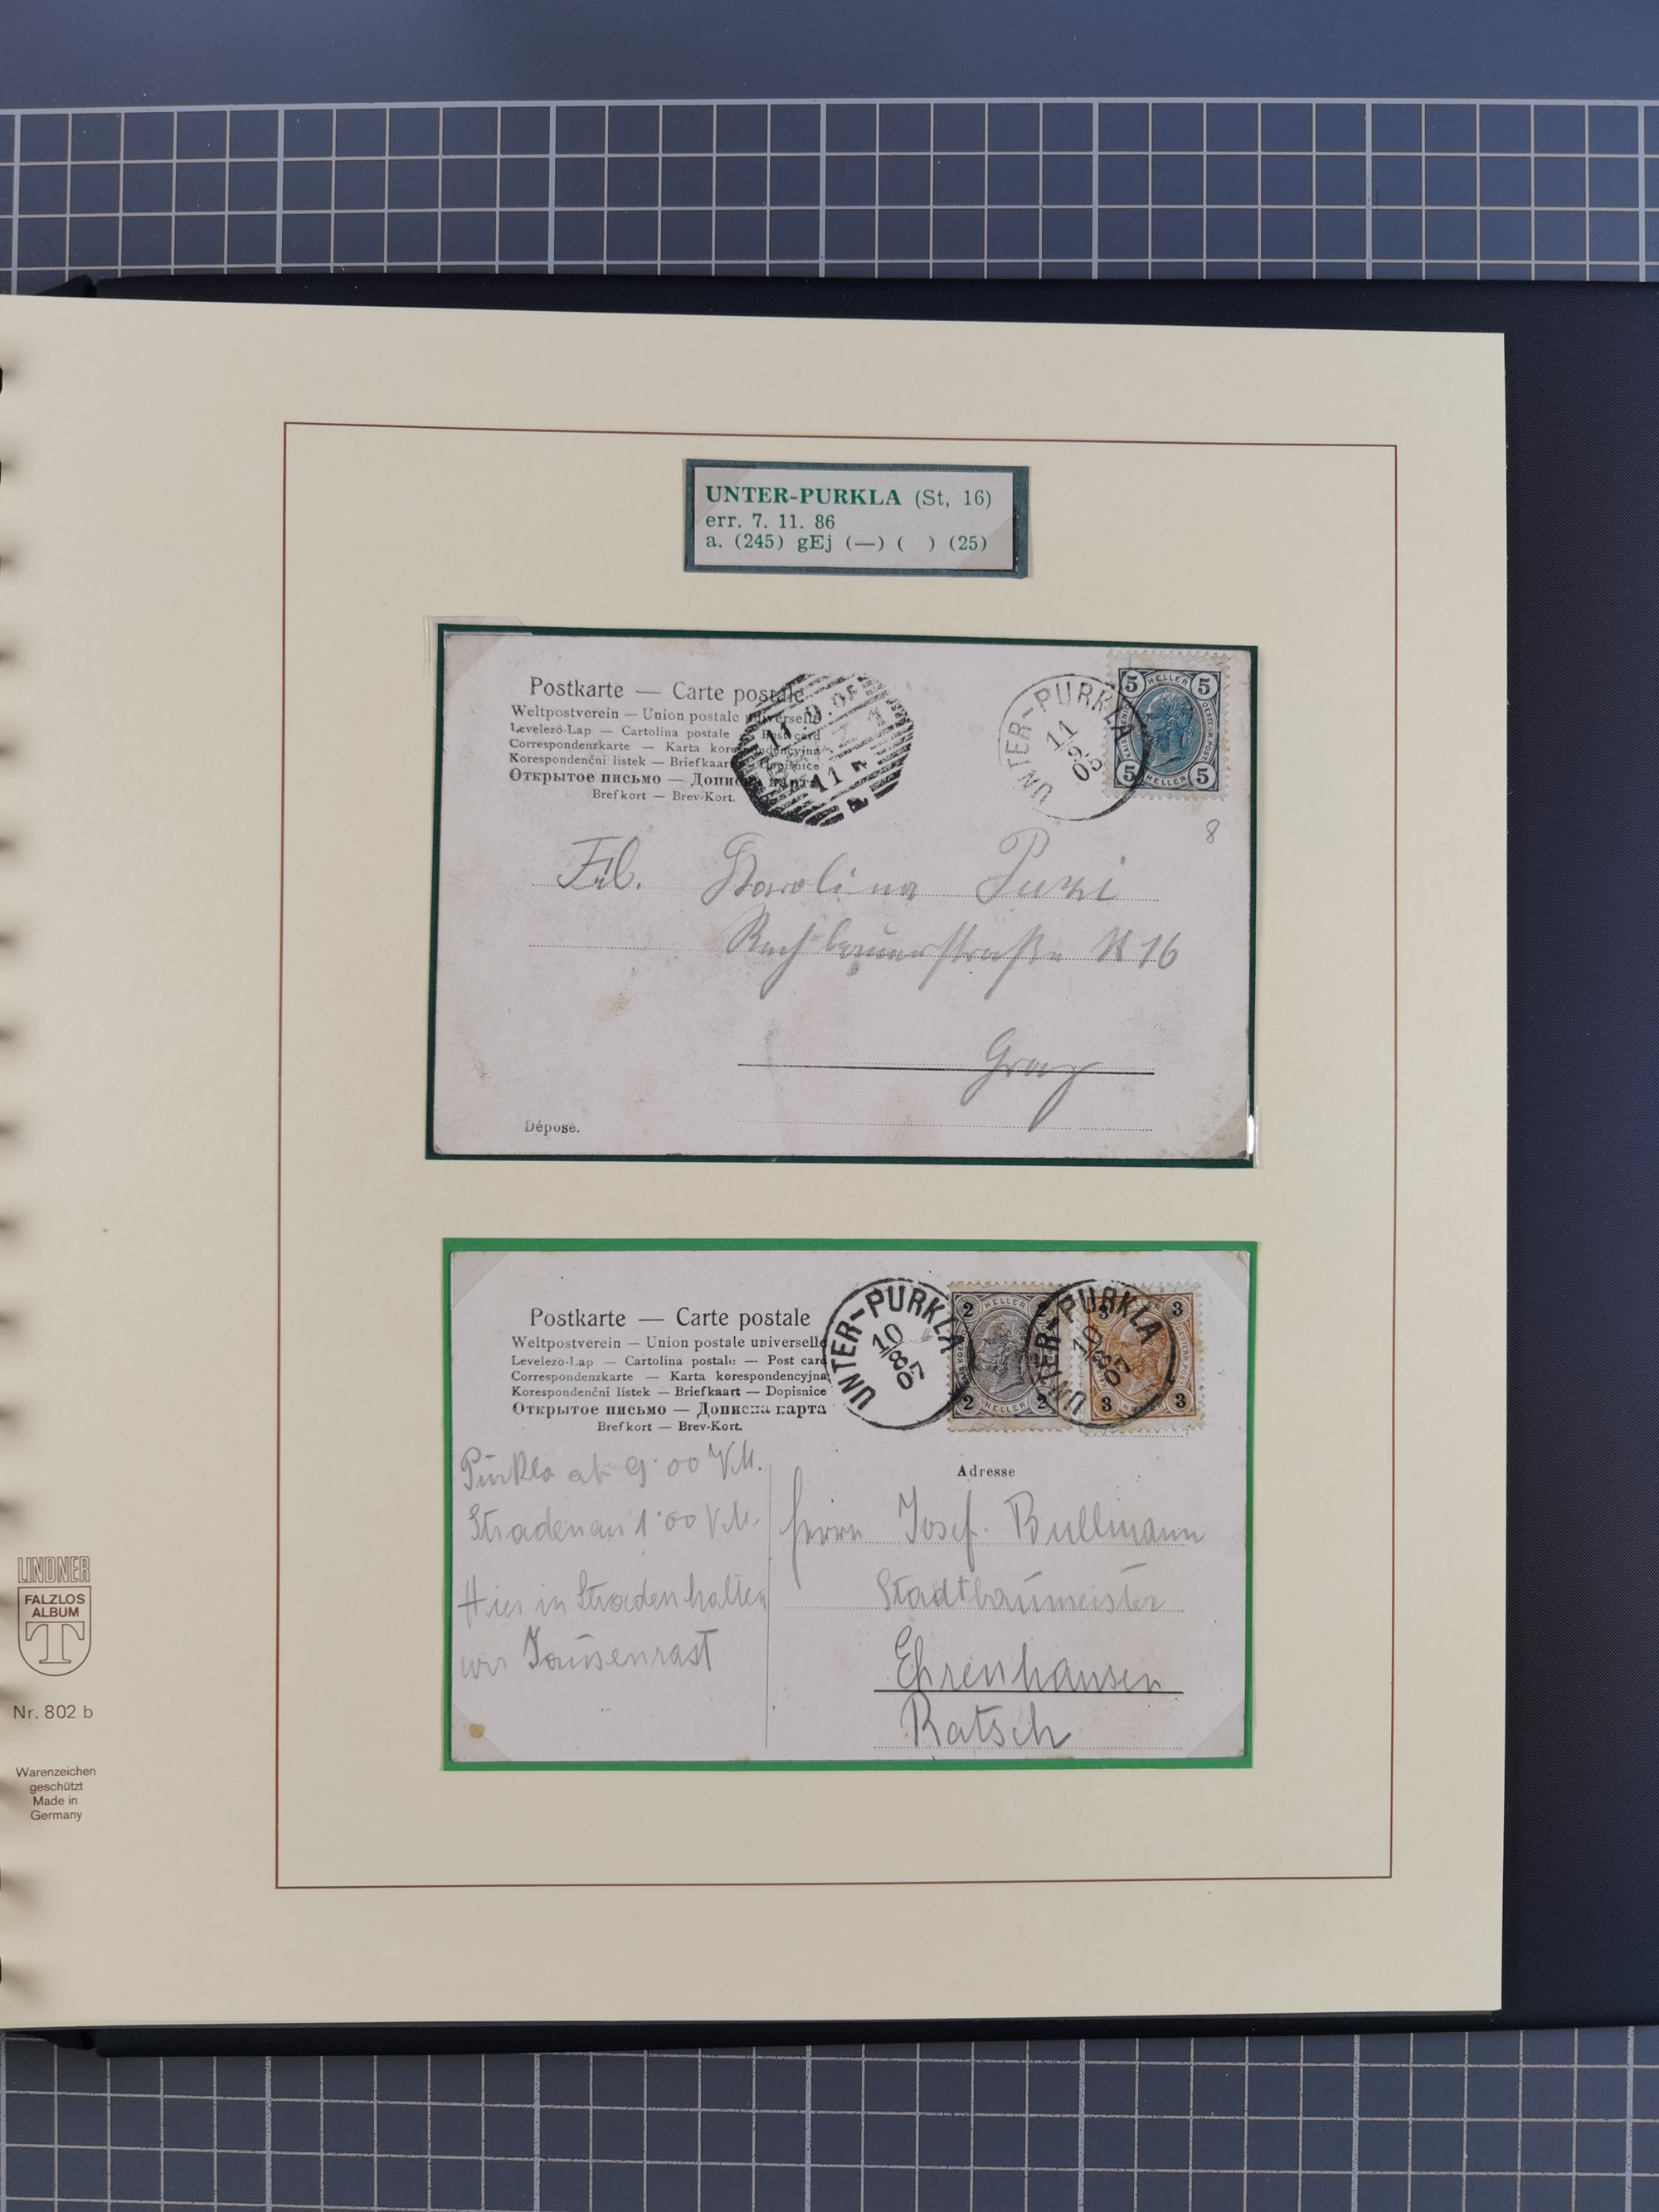 UNTER-PURKLA (St, 16)
err. 7. 11. 86
a. (245) gEj (—) ( ) (25)
Postkarte — Carte postale
Weltpostverein — Union postale universelle
Levelező-Lap — Cartolina postale — Post card
Correspondenzkarte — Karta korespondencyjna
Korespondenční lístek — Briefkaart — Dopisnice
Открытое письмо — Дописна карта
Brefkort — Brev-Kort.
UNTER-PURKLA
11
9
05
5 HELLER 5
5 HELLER 5
8
Frl. Karolina
Rechbauerstraße N 16
Graz
Déposé.
Postkarte — Carte postale
Weltpostverein — Union postale universelle
Levelező-Lap — Cartolina postale — Post card
Correspondenzkarte — Karta korespondencyjna
Korespondenční lístek — Briefkaart — Dopisnice
Открытое письмо — Дописна карта
Brefkort — Brev-Kort.
UNTER-PURKLA
10/8
05
2 HELLER 2
2 HELLER 2
UNTER-PURKLA
10/8
05
3 3
3 3
Purkla ab 9·00 V.M.
Straden an 1·00 V.M.
Hier in Straden halten
wir Jausenrast
Adresse
Herrn Josef Bullmann
Stadtbaumeister
Ehrenhausen
Ratsch
LINDNER
FALZLOS
ALBUM
T
Nr. 802 b
Warenzeichen
geschützt
Made in
Germany